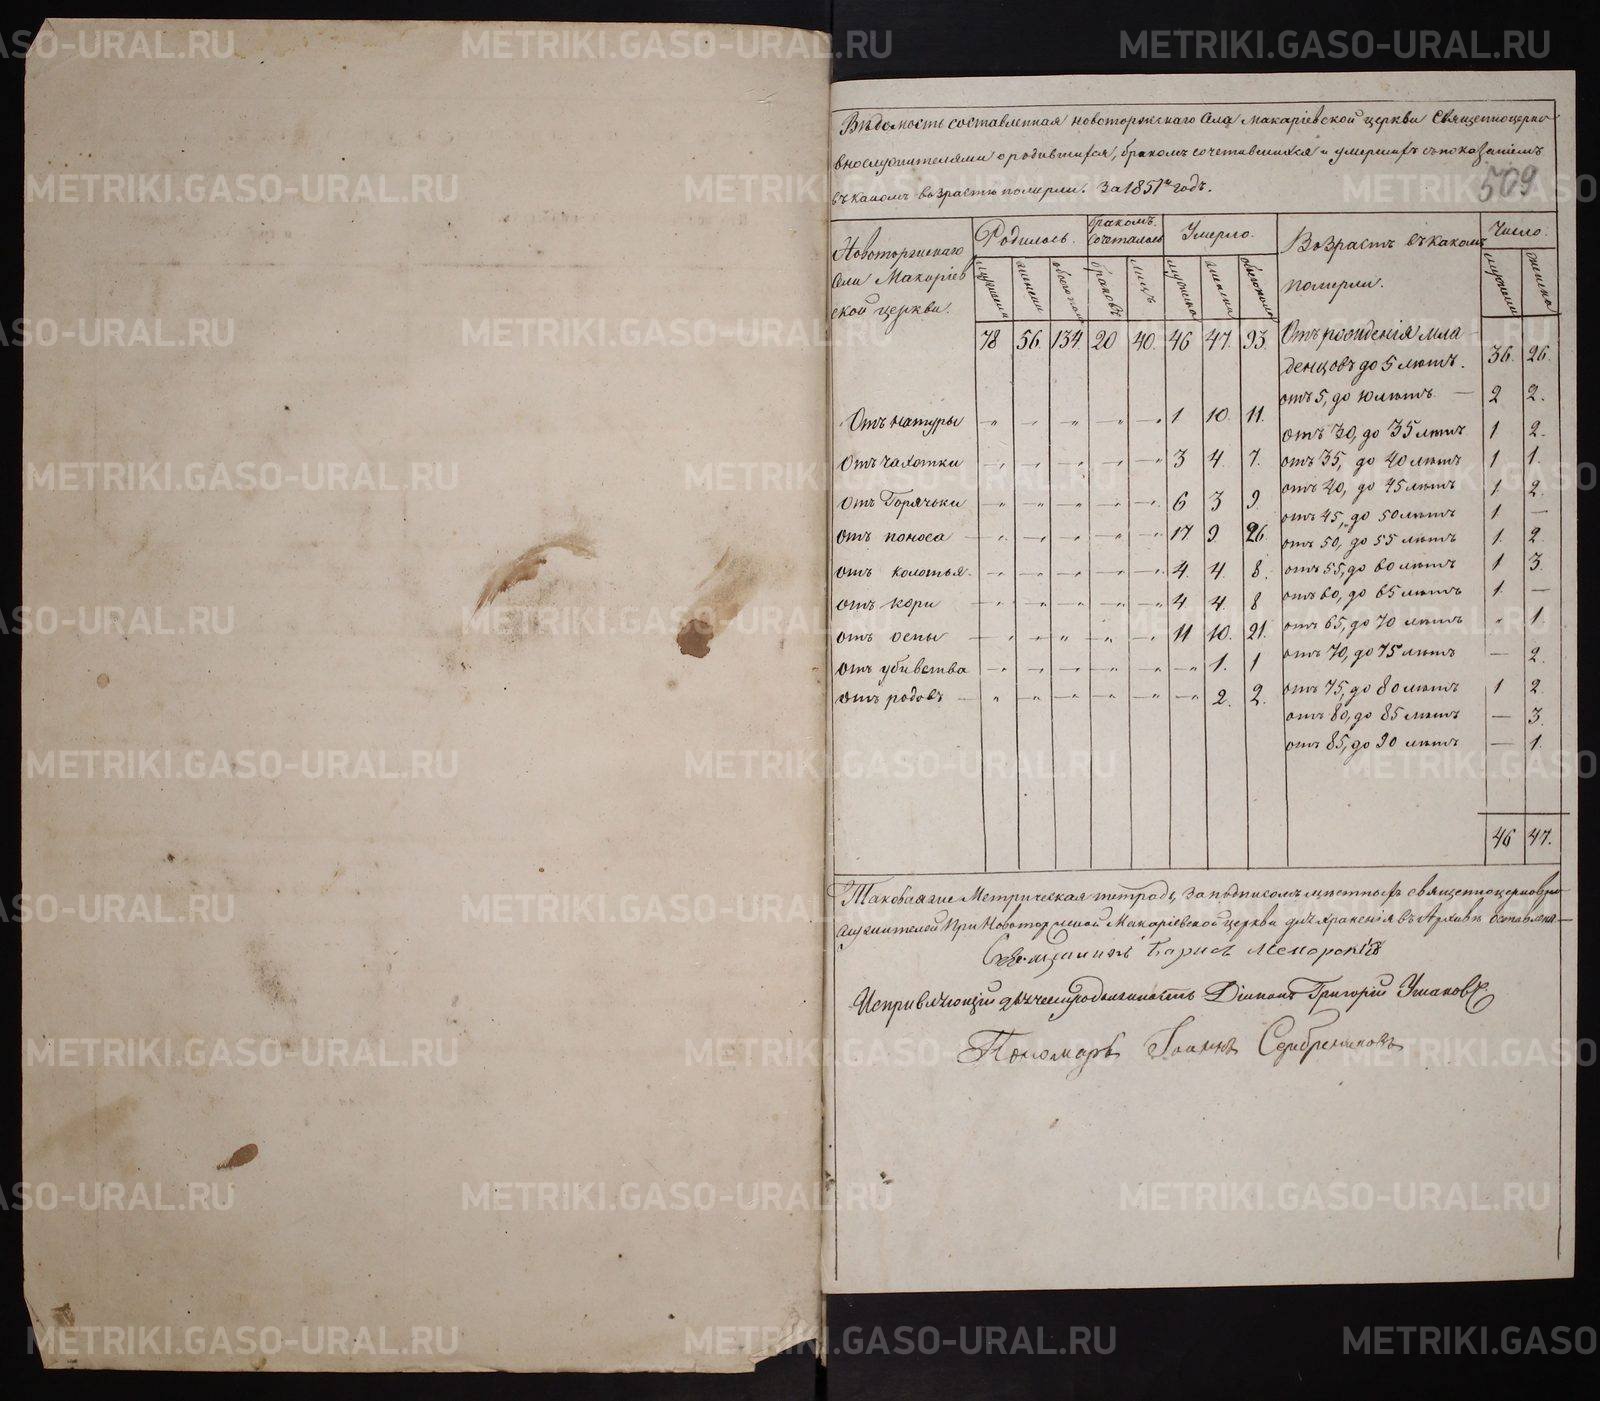 Вѣдомость составленная Новоторжскаго Села Макаріевской церкви Священноцерко
внослужителями о родившихся, бракомъ сочетавшихся и умершихъ съ показаніемъ
въ какомъ возрастѣ померли. За 1851й годъ.
509
Новоторжскаго
Села Макаріев
ской церкви.
Родилось.
бракомъ сочеталось
Умерло.
Возрастъ въ какомъ
померли.
Число.
мужеска женска обоего пола браковъ лицъ мужеска женска обоего пола мужеска женска
78 56. 134. 20 40. 46 47. 93.
Отъ рожденія мла
денцовъ до 5 лѣтъ. 36. 26.
отъ 5, до 10 лѣтъ — 2 2.
отъ 30, до 35 лѣтъ 1 2.
отъ 35, до 40 лѣтъ 1 1.
отъ 40, до 45 лѣтъ 1 2.
отъ 45, до 50 лѣтъ 1 —
отъ 50, до 55 лѣтъ 1. 2.
отъ 55, до 60 лѣтъ 1 3.
отъ 60, до 65 лѣтъ 1. —
отъ 65, до 70 лѣтъ " 1.
отъ 70, до 75 лѣтъ — 2.
отъ 75, до 80 лѣтъ 1 2
отъ 80, до 85 лѣтъ — 3.
отъ 85, до 90 лѣтъ — 1.
46 47.
Отъ натуры 1 10. 11.
Отъ чахотки 3 4. 7.
Отъ Горячьки 6 3 9
отъ поноса 17 9. 26.
отъ колотья 4. 4. 8.
отъ кори 4 4. 8
отъ оспы 11 10. 21.
отъ убивства 1. 1
отъ родовъ 2. 2.
Таковая же Метрическая тетрадь, за подписомъ мѣстныхъ священноцерковно
служителей при Новоторжской Макаріевской церкви для храненія въ Архивѣ оставлена
Священникъ Борисъ Меморскій
Исправляющій дьяческую должность Діаконъ Григорій Ушаковъ.
Пономарь Іоаннъ Серебренниковъ
METRIKI.GASO-URAL.RU